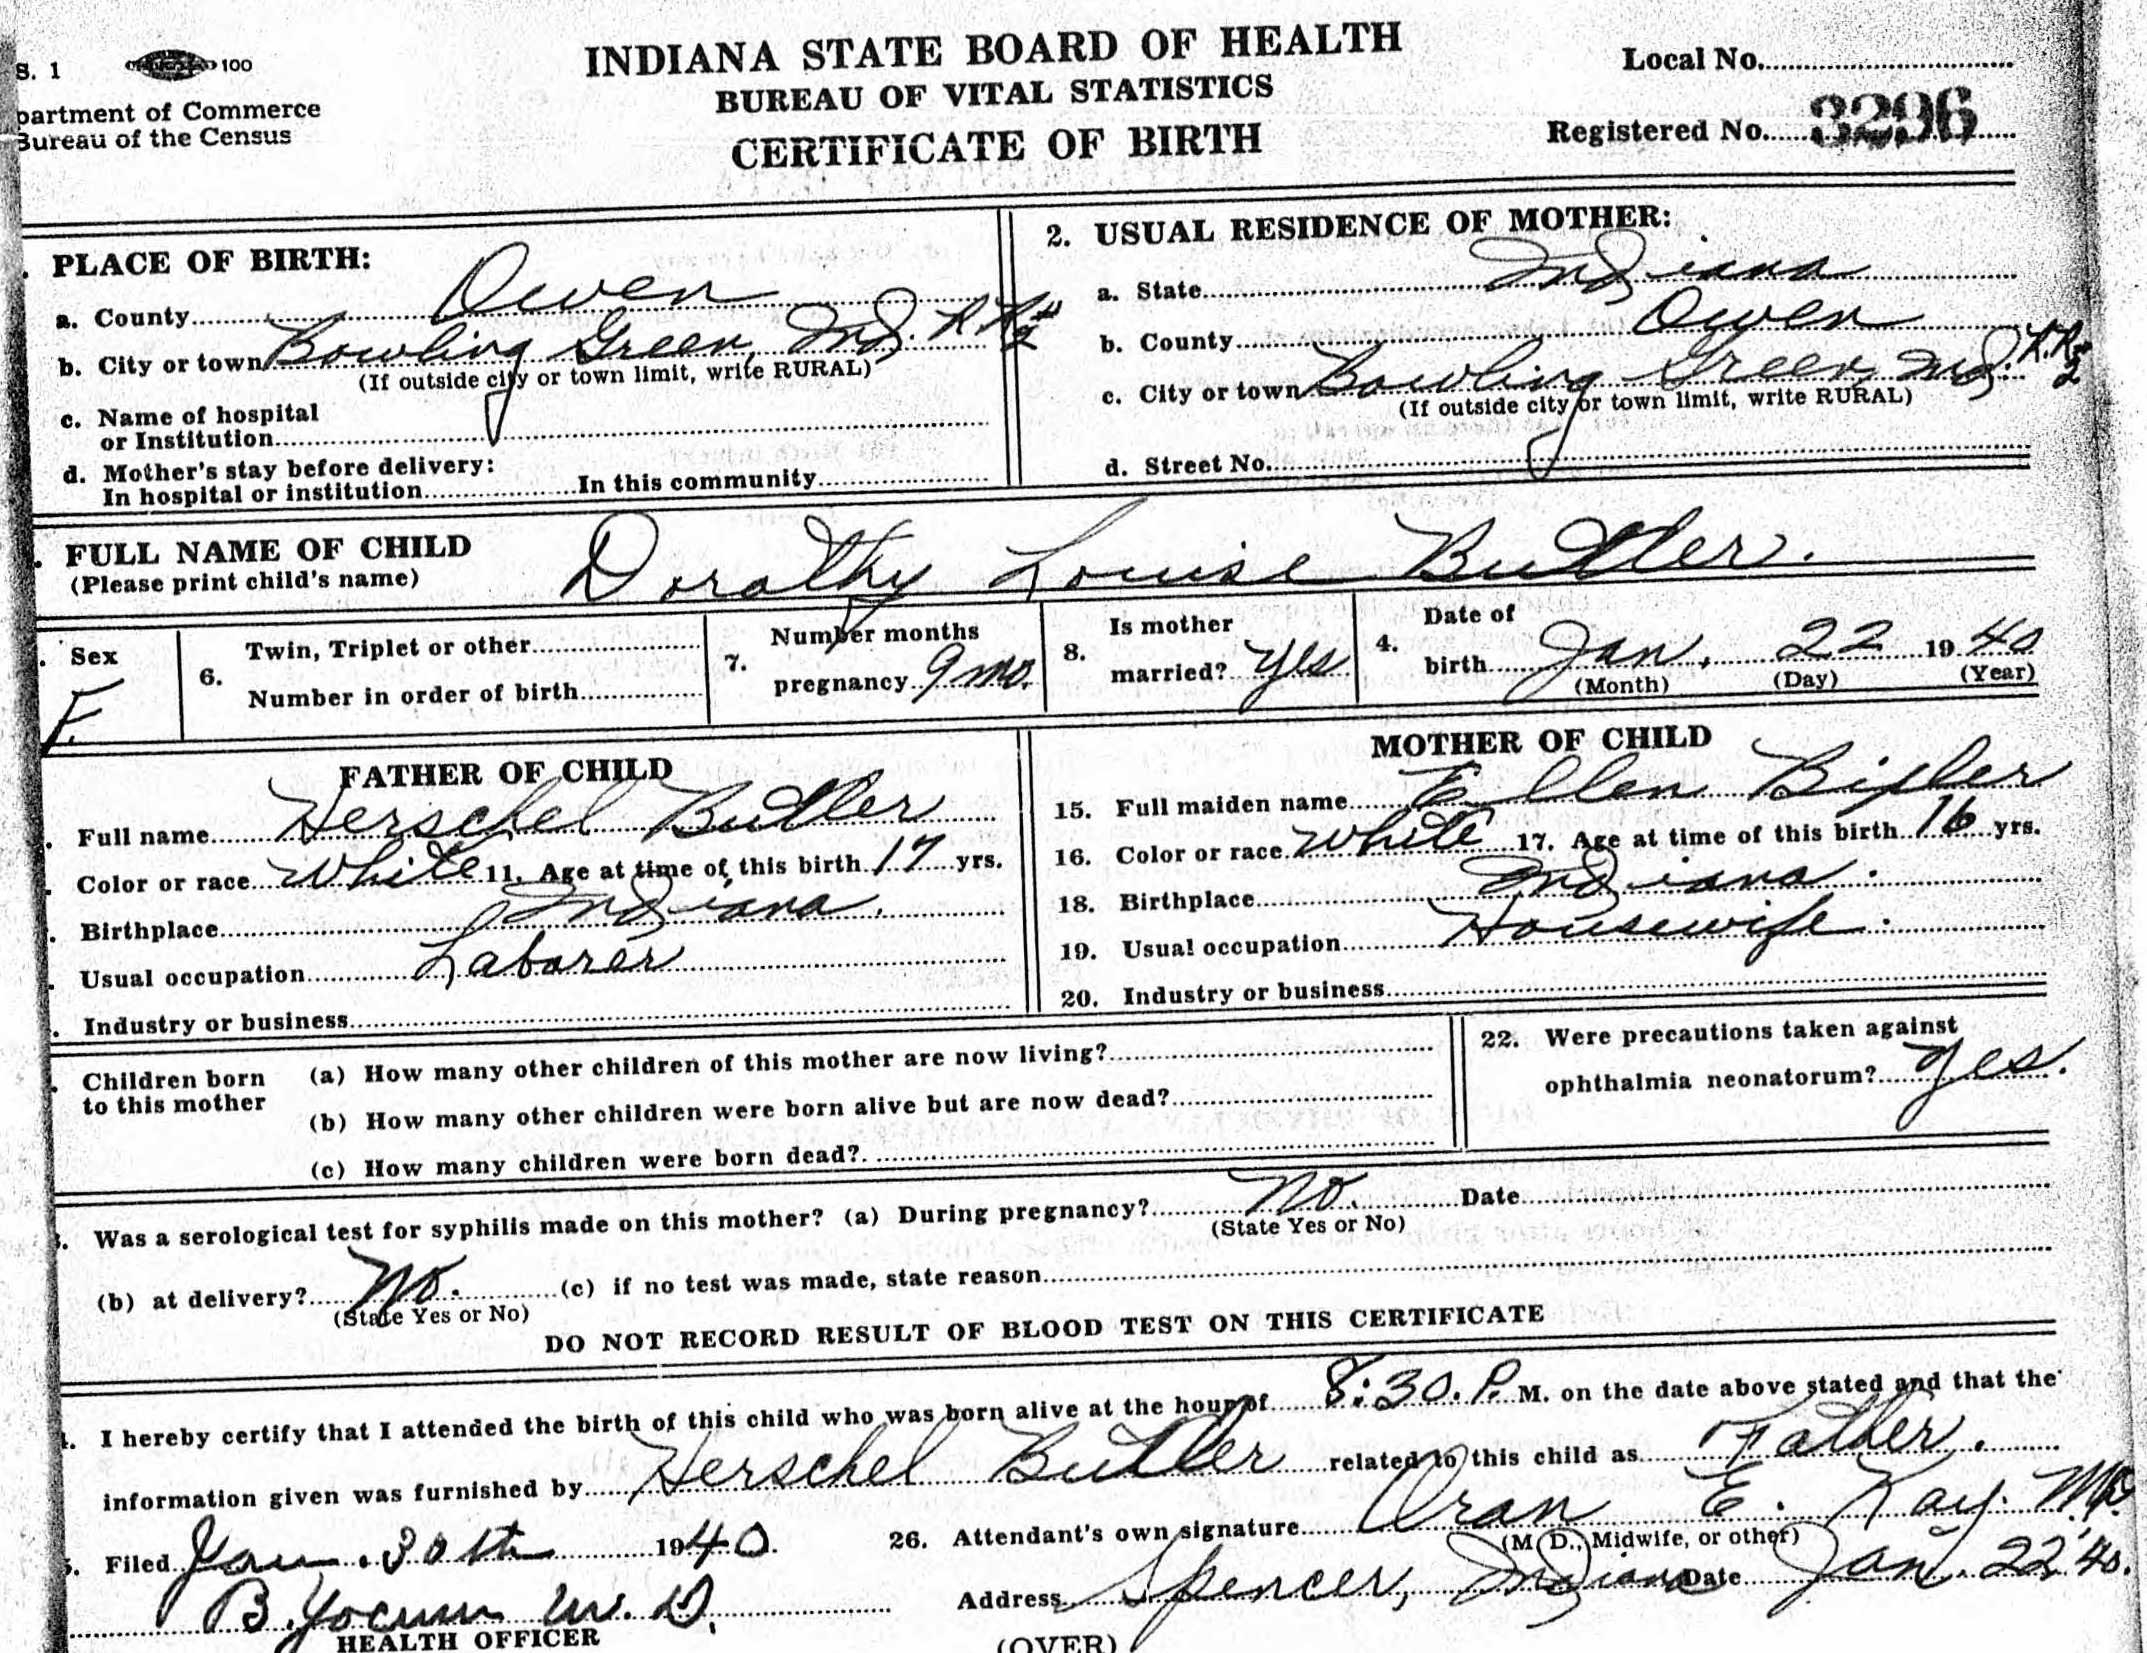 S. 1 100
partment of Commerce
Bureau of the Census
INDIANA STATE BOARD OF HEALTH
BUREAU OF VITAL STATISTICS
CERTIFICATE OF BIRTH
Local No.
Registered No. 3296
PLACE OF BIRTH:
a. County Owen
b. City or town Bowling Green, Ind. R R # 2
(If outside city or town limit, write RURAL)
c. Name of hospital
or Institution
d. Mother's stay before delivery:
In hospital or institution In this community
2. USUAL RESIDENCE OF MOTHER:
a. State Indiana
b. County Owen
c. City or town Bowling Green, Ind. R.R. 2
(If outside city or town limit, write RURAL)
d. Street No.
. FULL NAME OF CHILD Dorothy Louise Butler.
(Please print child's name)
. Sex F.
6. Twin, Triplet or other
Number in order of birth
7. Number months
pregnancy 9 mo.
8. Is mother
married? Yes
4. Date of
birth Jan. 22 1940
(Month) (Day) (Year)
FATHER OF CHILD
. Full name Herschel Butler
. Color or race White 11. Age at time of this birth 17 yrs.
. Birthplace Indiana.
. Usual occupation Laborer
. Industry or business
MOTHER OF CHILD
15. Full maiden name Ellen Bixler
16. Color or race White 17. Age at time of this birth 16 yrs.
18. Birthplace Indiana.
19. Usual occupation Housewife.
20. Industry or business
. Children born
to this mother
(a) How many other children of this mother are now living?
(b) How many other children were born alive but are now dead?
(c) How many children were born dead?
22. Were precautions taken against
ophthalmia neonatorum? Yes.
. Was a serological test for syphilis made on this mother? (a) During pregnancy? No. Date
(State Yes or No)
(b) at delivery? No. (c) if no test was made, state reason
(State Yes or No)
DO NOT RECORD RESULT OF BLOOD TEST ON THIS CERTIFICATE
. I hereby certify that I attended the birth of this child who was born alive at the hour of 8:30. P. M. on the date above stated and that the
information given was furnished by Herschel Butler related to this child as Father.
. Filed Jan. 30th 1940
B. Yocum M. D.
HEALTH OFFICER
26. Attendant's own signature Oran E. Kay. M.D.
(M. D., Midwife, or other)
Address Spencer, Indiana Date Jan. 22 '40.
(OVER)